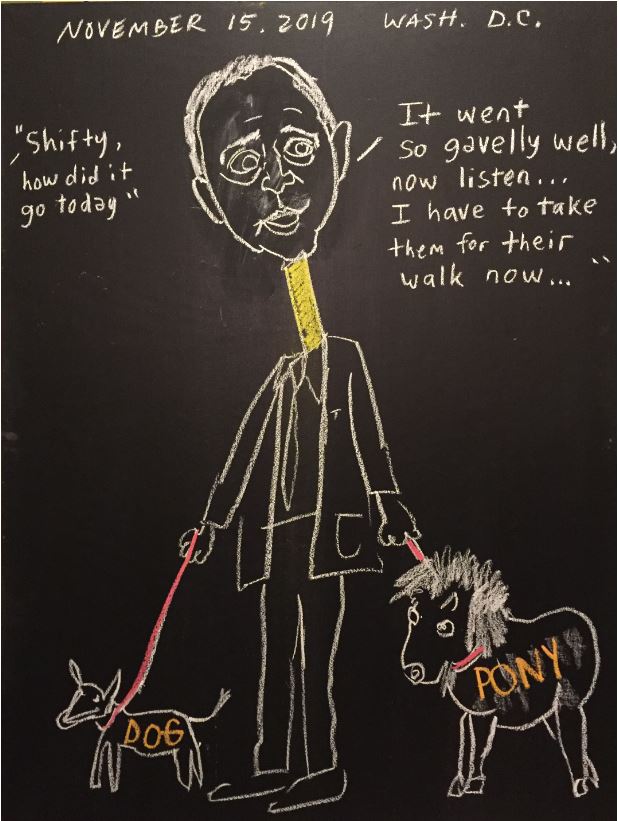 NOVEMBER 15, 2019 WASH. D.C.
"Shifty,
how did it
go today"
It went
so gavelly well,
now listen...
I have to take
them for their
walk now..."
DOG
PONY